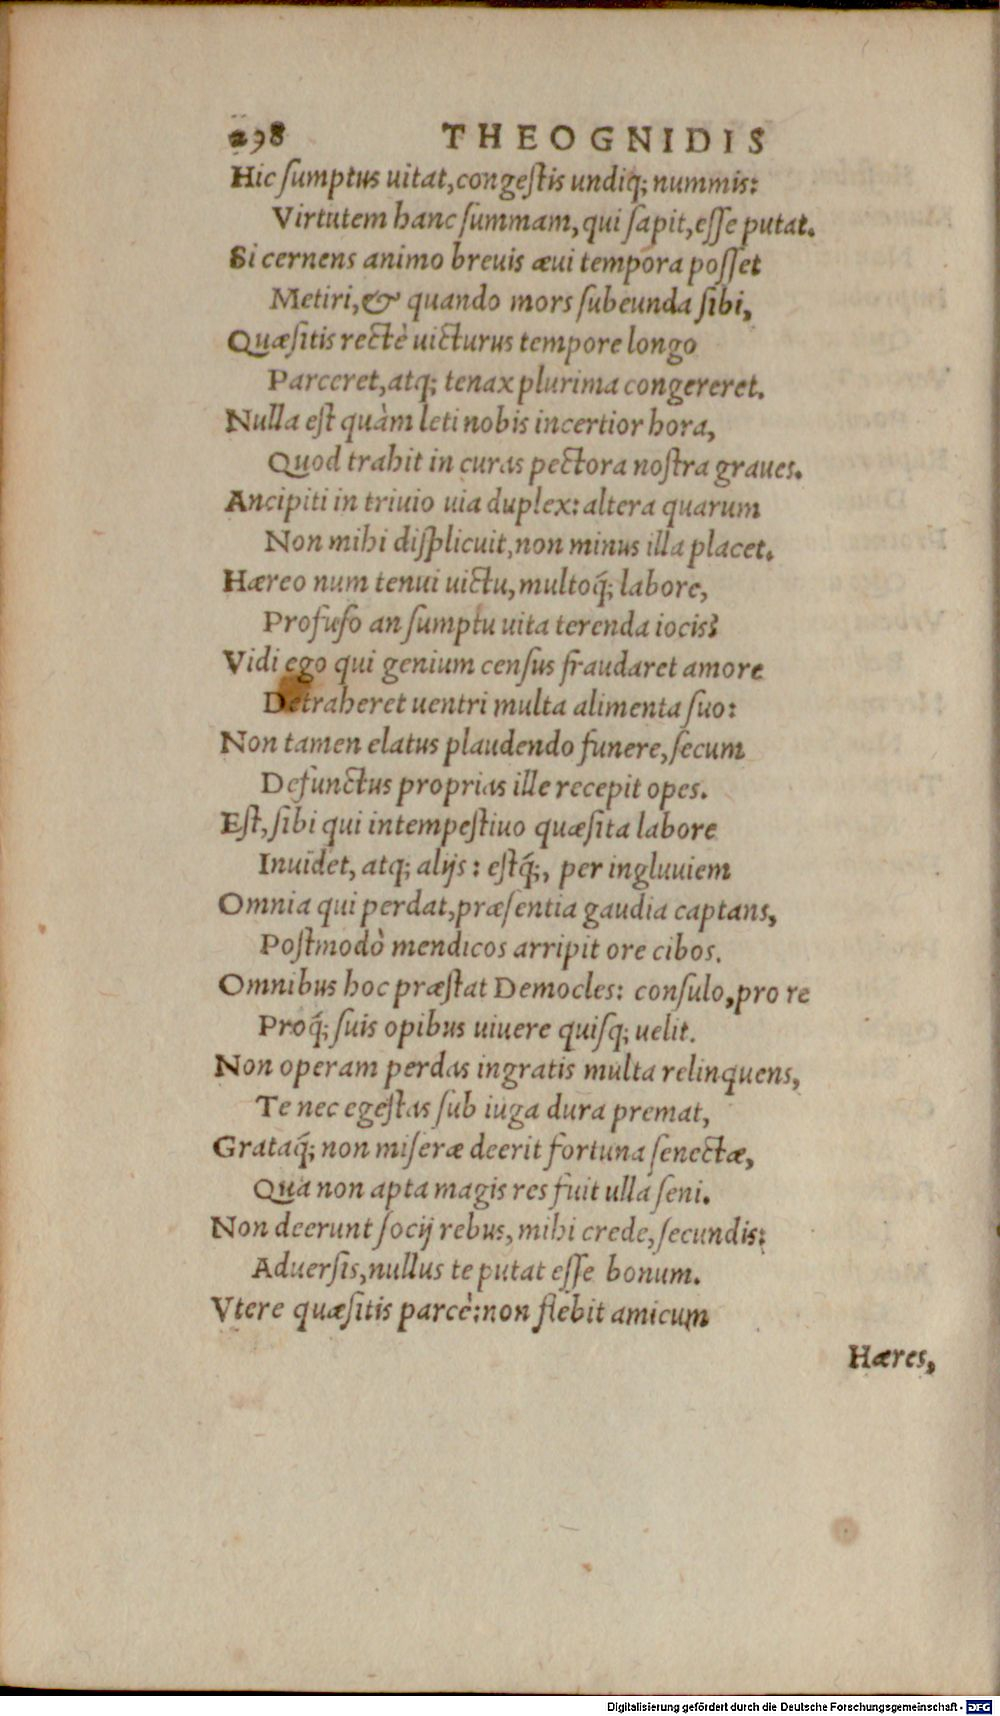 298 THEOGNIDIS
Hic sumptus uitat, congestis undiq; nummis:
Virtutem hanc summam, qui sapit, esse putat.
Si cernens animo breuis æui tempora posset
Metiri, & quando mors subeunda sibi,
Quæsitis rectè uicturus tempore longo
Parceret, atq; tenax plurima congereret.
Nulla est quàm leti nobis incertior hora,
Quod trahit in curas pectora nostra graues.
Ancipiti in triuio uia duplex: altera quarum
Non mihi displicuit, non minus illa placet.
Hæreo num tenui uictu, multoq́; labore,
Profuso an sumptu uita terenda iocis?
Vidi ego qui genium census fraudaret amore
Detraheret uentri multa alimenta suo:
Non tamen elatus plaudendo funere, secum
Defunctus proprias ille recepit opes.
Est, sibi qui intempestiuo quæsita labore
Inuidet, atq; alijs: estq́;, per ingluuiem
Omnia qui perdat, præsentia gaudia captans,
Postmodò mendicos arripit ore cibos.
Omnibus hoc præstat Democles: consulo, pro re
Proq́; suis opibus uiuere quisq; uelit.
Non operam perdas ingratis multa relinquens,
Te nec egestas sub iuga dura premat,
Grataq́; non miseræ deerit fortuna senectæ,
Qua non apta magis res fuit ulla seni.
Non deerunt socij rebus, mihi crede, secundis:
Aduersis, nullus te putat esse bonum.
Vtere quæsitis parcè: non flebit amicum
Hæres,
Digitalisierung gefördert durch die Deutsche Forschungsgemeinschaft - DFG